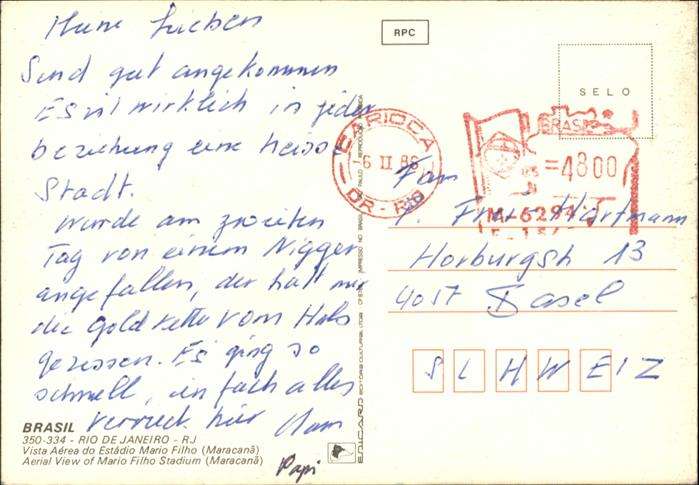 Meine Lieben
Sind gut angekommen
Es ist wirklich in jeder
beziehung eine heisse
Stadt.
Wurde am zweiten
Tag von einem Nigger
angefallen, der hatt mir
die Goldkette vom Hals
gerissen. Es ging so
schnell, einfach alles
verrückt hier
Papi
BRASIL
350-334 - RIO DE JANEIRO - RJ
Vista Aérea do Estádio Mario Filho (Maracanã)
Aerial View of Mario Filho Stadium (Maracanã)
EDICARD EDITORA CULTURAL LTDA.
RPC
SELO
CARIOCA
-6 II 86
DR-RJ
BRASIL
=4800
Fam
Hartmann
Horburgstr 13
4057 Basel
SCHWEIZ